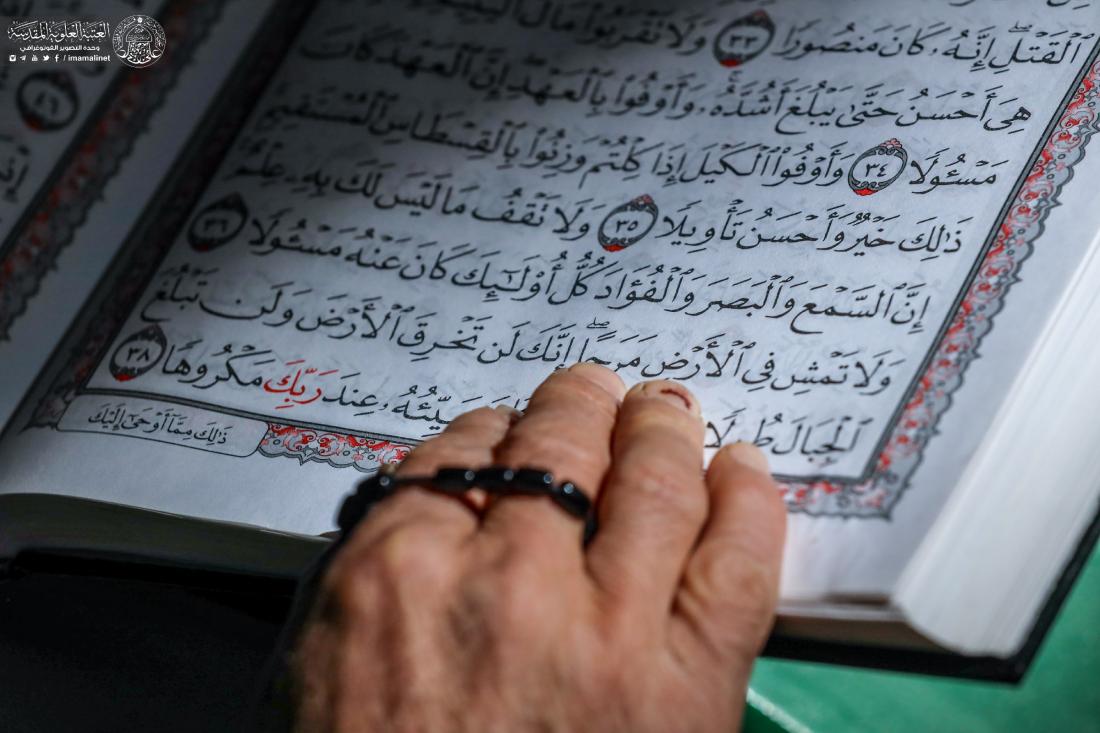 العتبة العلوية المقدسة
وحدة التصوير الفوتوغرافي
/ imamalinet
ٱلْقَتْلِ إِنَّهُۥ كَانَ مَنصُورًا ٣٣ وَلَا تَقْرَبُوا۟ مَالَ
هِىَ أَحْسَنُ حَتَّىٰ يَبْلُغَ أَشُدَّهُۥ وَأَوْفُوا۟ بِٱلْعَهْدِ إِنَّ ٱلْعَهْدَ كَانَ
مَسْـُٔولًا ٣٤ وَأَوْفُوا۟ ٱلْكَيْلَ إِذَا كِلْتُمْ وَزِنُوا۟ بِٱلْقِسْطَاسِ ٱلْمُسْتَقِيمِ
ذَٰلِكَ خَيْرٌ وَأَحْسَنُ تَأْوِيلًا ٣٥ وَلَا تَقْفُ مَا لَيْسَ لَكَ بِهِۦ عِلْمٌ
إِنَّ ٱلسَّمْعَ وَٱلْبَصَرَ وَٱلْفُؤَادَ كُلُّ أُو۟لَـٰٓئِكَ كَانَ عَنْهُ مَسْـُٔولًا ٣٦
وَلَا تَمْشِ فِى ٱلْأَرْضِ مَرَحًا إِنَّكَ لَن تَخْرِقَ ٱلْأَرْضَ وَلَن تَبْلُغَ
ٱلْجِبَالَ سَيِّئُهُۥ عِندَ رَبِّكَ مَكْرُوهًا ٣٨
ذَٰلِكَ مِمَّآ أَوْحَىٰٓ إِلَيْكَ
٤٦